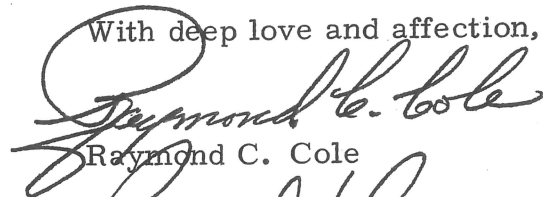 With deep love and affection,
Raymond C. Cole
Raymond C. Cole